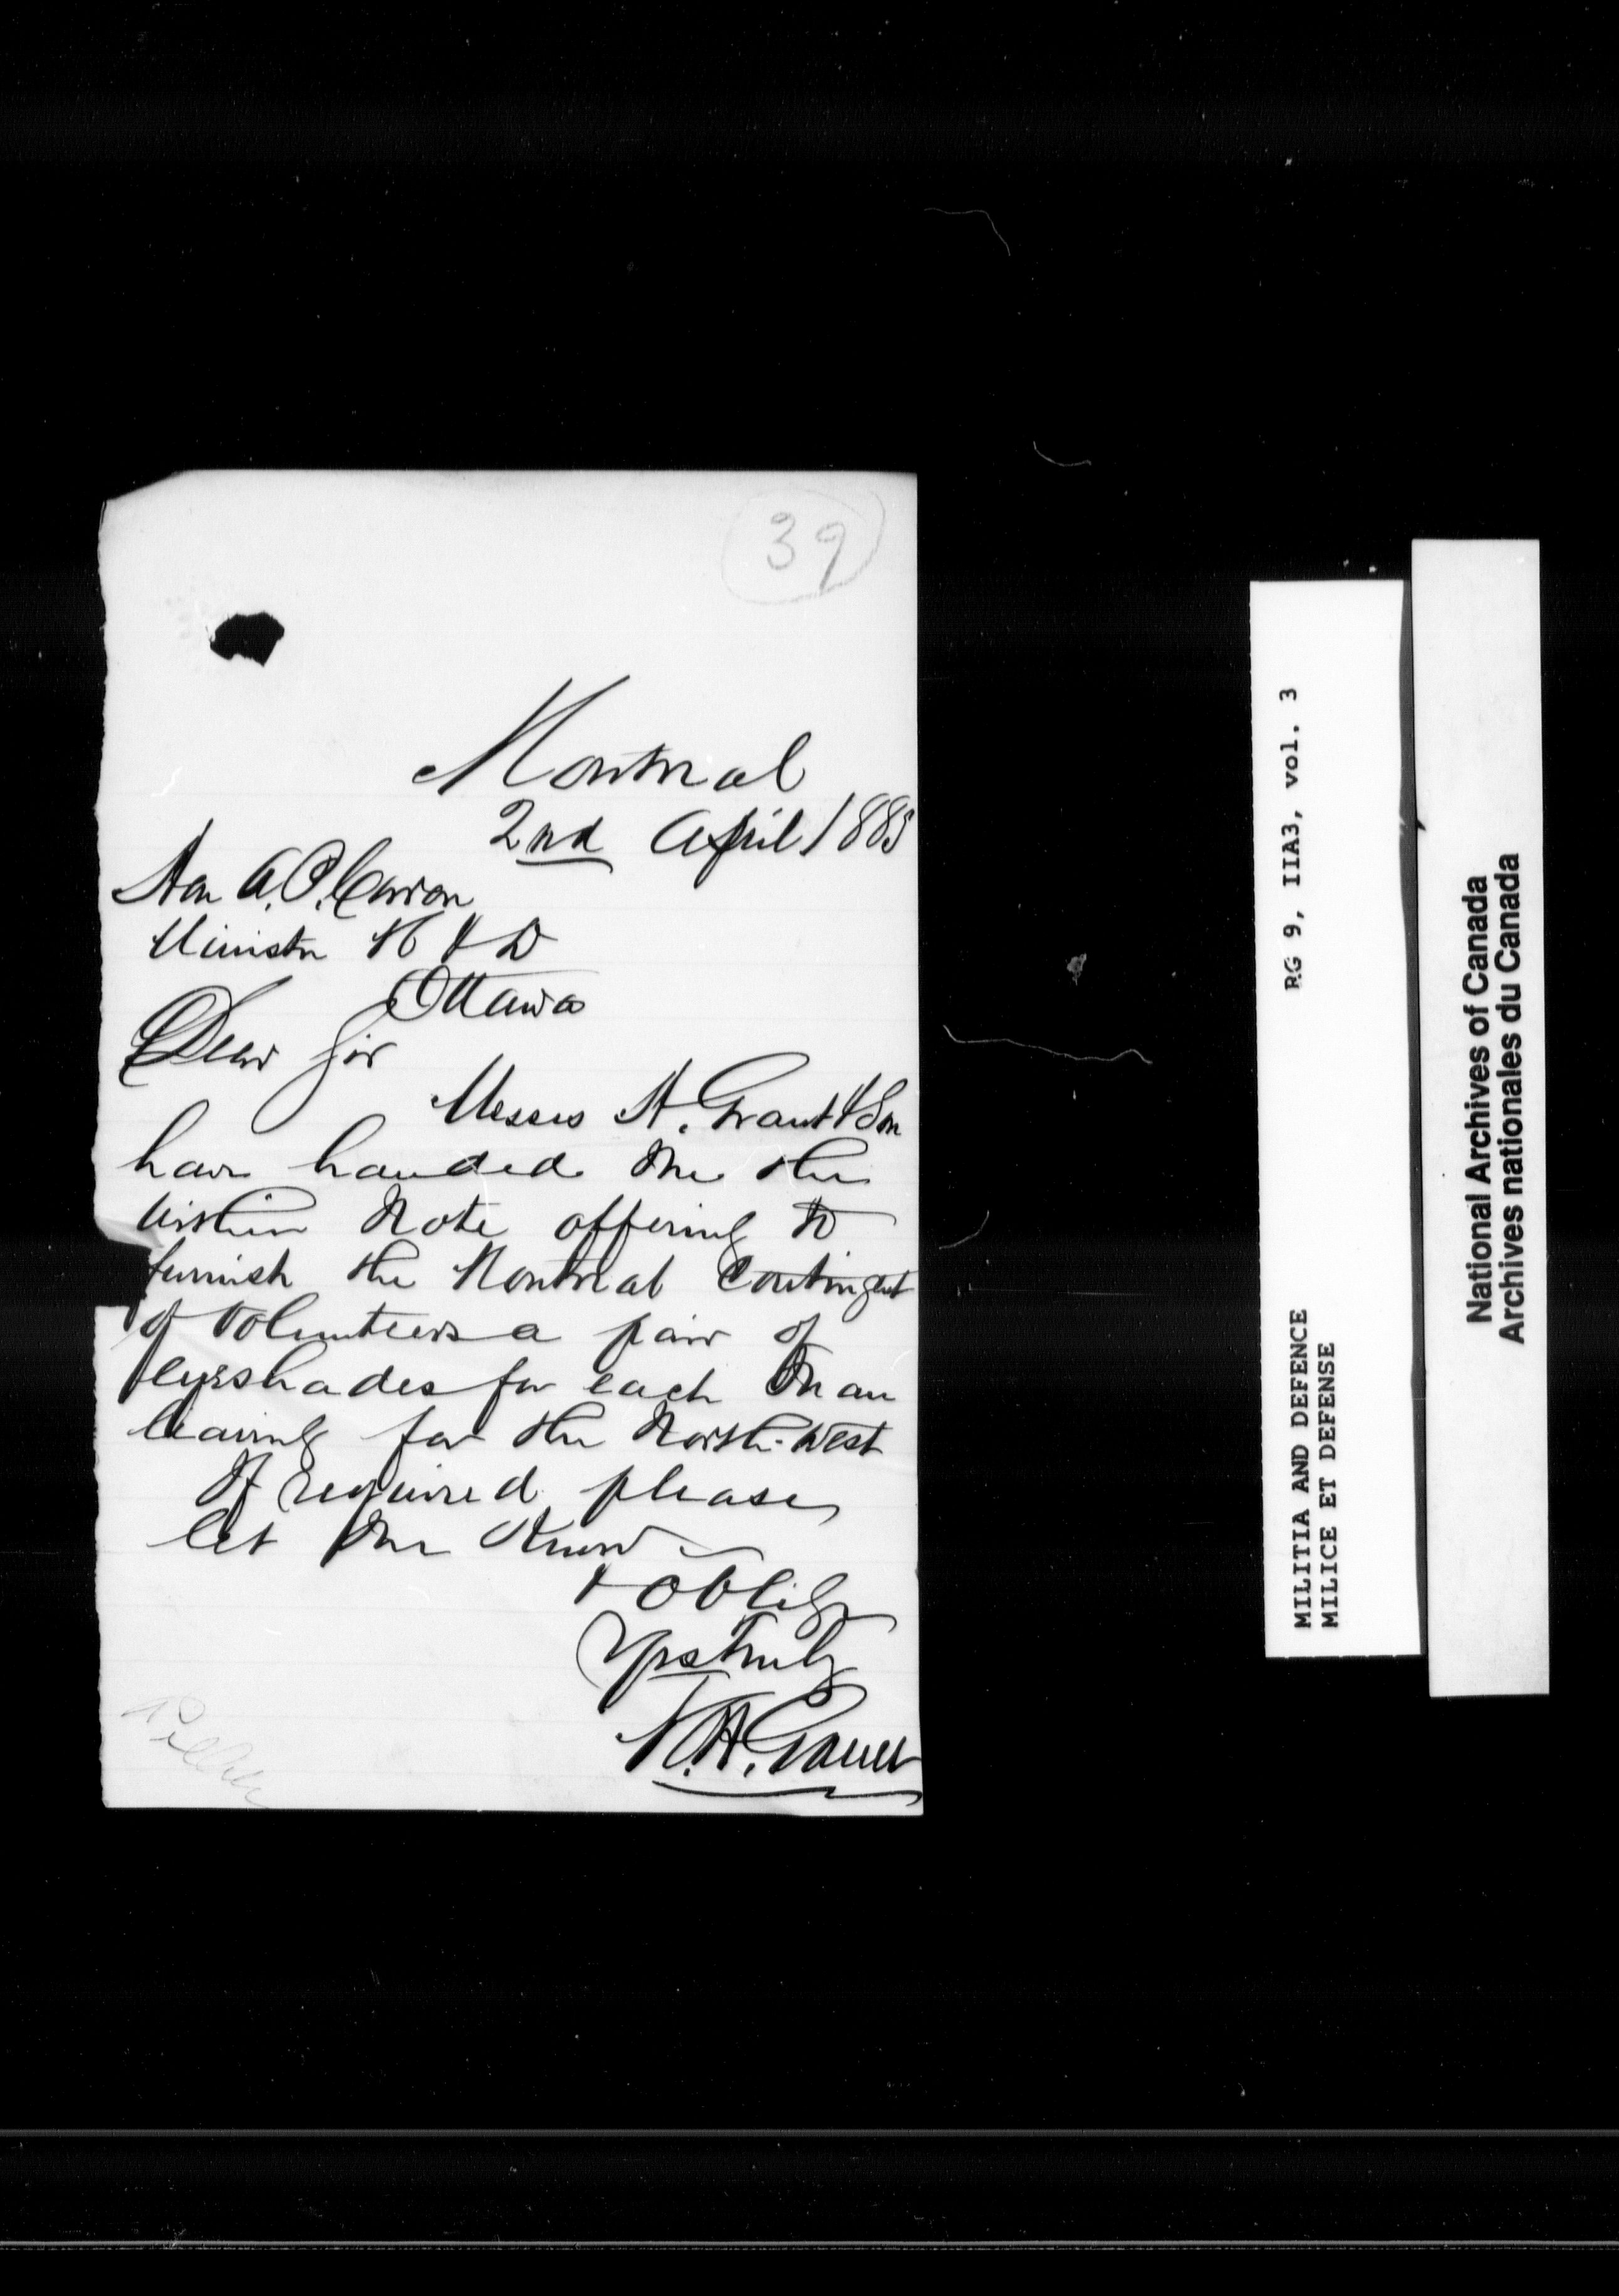 39
Montreal
2nd April 1885
Hon A. P. Caron
Minister M & D
Ottawa
Dear Sir
Messrs H. Grant & Son
have handed me the
within note offering to
furnish the Montreal Contingent
of Volunteers a pair of
eyeshades for each man
leaving for the North-West
If required please
let me know
& oblige
Yrs truly
RG 9, IIA3, vol. 3
MILITIA AND DEFENCE
MILICE ET DEFENSE
National Archives of Canada
Archives nationales du Canada